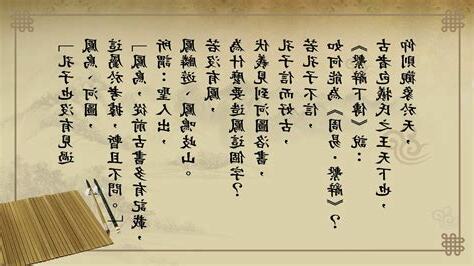 「孔子也沒有見過
鳳鳥、河圖，
這屬於考據，暫且不問。」
「鳳鳥，從前古書多有記載，
所謂：聖人出，
鳳麟遊、鳳鳴岐山。
若沒有鳳，
為什麼要造鳳這個字？
伏羲見到河圖洛書，
孔子信而好古，
若孔子不信，
如何能為《周易·繫辭》？
《繫辭下傳》說：
古者包犧氏之王天下也，
仰則觀象於天，